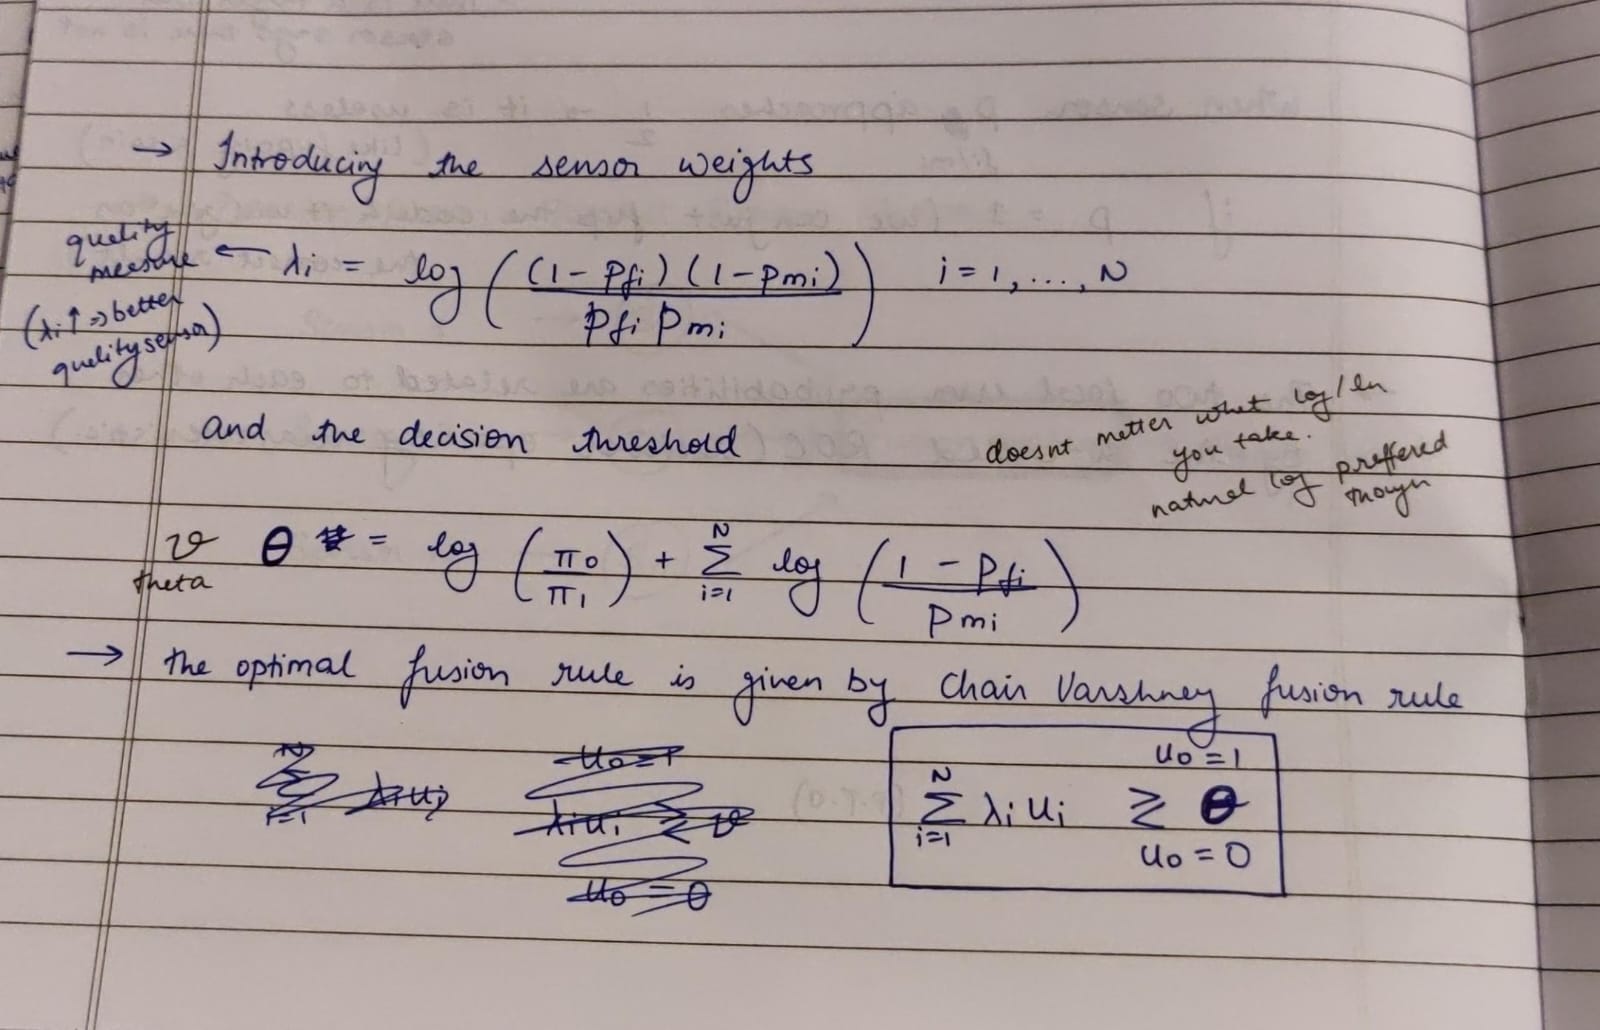 → Introducing the sensor weights
quality measure ← λi = log ( (1 - Pfi) (1 - Pmi) / Pfi Pmi ) i = 1, ..., N
(λi ↑ ⇒ better quality sensor)
and the decision threshold
doesnt matter what log / ln you take.
natural log preffered though
ϑ θ = log ( π0 / π1 ) + Σ i=1 N log ( 1 - Pfi / Pmi )
theta
→ the optimal fusion rule is given by Chair Varshney fusion rule
Σ i=1 N λi ui ≷ θ
u0 = 1
u0 = 0